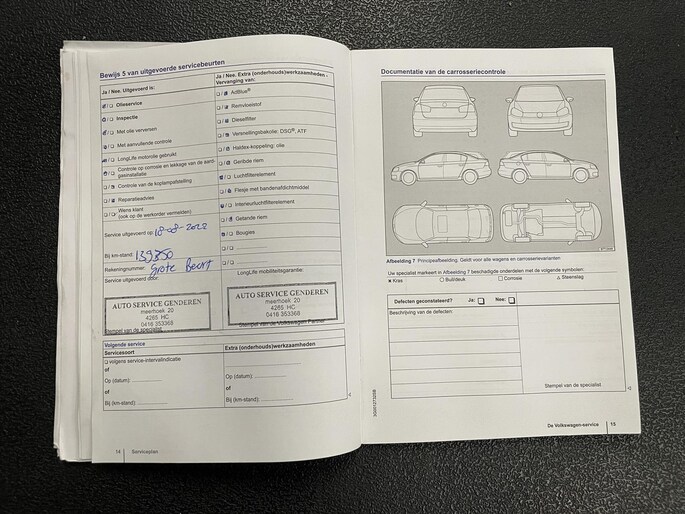 Bewijs 5 van uitgevoerde servicebeurten
Ja / Nee. Uitgevoerd is:
Olieservice
Inspectie
Met olie verversen
Met aanvullende controle
LongLife motorolie gebruikt
Controle op corrosie en lekkage van de aardgasinstallatie
Controle van de koplampafstelling
Reparatieadvies
Wens klant
(ook op de werkorder vermelden)
Service uitgevoerd op: 18-08-2022
Bij km-stand: 139350
Rekeningnummer: Grote Beurt
Service uitgevoerd door:
AUTO SERVICE GENDEREN
meerhoek 20
4265 HC
0416 353368
Stempel van de specialist
Ja / Nee. Extra (onderhouds)werkzaamheden -
Vervanging van:
AdBlue®
Remvloeistof
Dieselfilter
Versnellingsbakolie: DSG®, ATF
Haldex-koppeling: olie
Geribde riem
Luchtfilterelement
Flesje met bandenafdichtmiddel
Interieurluchtfilterelement
Getande riem
Bougies
LongLife mobiliteitsgarantie:
AUTO SERVICE GENDEREN
meerhoek 20
4265 HC
0416 353368
Stempel van de Volkswagen Partner
Volgende service
Servicesoort
volgens service-intervalindicatie
of
Op (datum):
of
Bij (km-stand):
Extra (onderhouds)werkzaamheden
of
Op (datum):
of
Bij (km-stand):
14 Serviceplan
Documentatie van de carrosseriecontrole
Afbeelding 7 Principeafbeelding. Geldt voor alle wagens en carrosserievarianten.
Uw specialist markeert in Afbeelding 7 beschadigde onderdelen met de volgende symbolen:
× Kras
○ Buil/deuk
□ Corrosie
△ Steenslag
Defecten geconstateerd? Ja: Nee:
Beschrijving van de defecten:
Stempel van de specialist
De Volkswagen-service 15